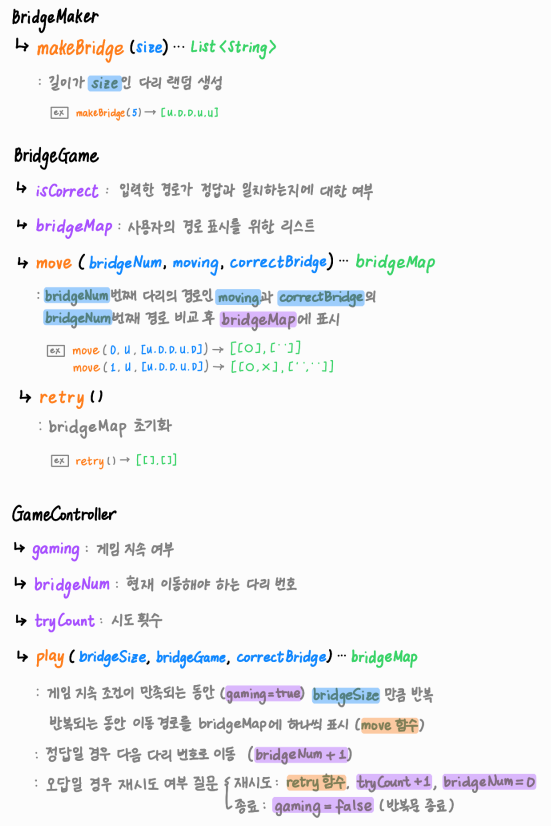 BridgeMaker
↳ makeBridge (size) ··· List<String>
: 길이가 size인 다리 랜덤 생성
ex makeBridge(5) → [U,D,D,U,U]
BridgeGame
↳ isCorrect : 입력한 경로가 정답과 일치하는지에 대한 여부
↳ bridgeMap : 사용자의 경로 표시를 위한 리스트
↳ move ( bridgeNum, moving, correctBridge) ··· bridgeMap
: bridgeNum번째 다리의 경로인 moving과 correctBridge의
bridgeNum번째 경로 비교 후 bridgeMap에 표시
ex move ( 0, U, [U,D,D,U,D]) → [[O],[' ']]
move ( 1, U, [U,D,D,U,D]) → [[O,X],[' ',' ']]
↳ retry ()
: bridgeMap 초기화
ex retry() → [[],[]]
GameController
↳ gaming : 게임 지속 여부
↳ bridgeNum : 현재 이동해야 하는 다리 번호
↳ tryCount : 시도 횟수
↳ play ( bridgeSize, bridgeGame, correctBridge) ··· bridgeMap
: 게임 지속 조건이 만족되는 동안 (gaming=true) bridgeSize 만큼 반복
반복되는 동안 이동 경로를 bridgeMap에 하나씩 표시 (move 함수)
: 정답일 경우 다음 다리 번호로 이동 (bridgeNum + 1)
: 오답일 경우 재시도 여부 질문 { 재시도 : retry 함수, tryCount +1, bridgeNum = 0
종료 : gaming = false (반복문 종료)